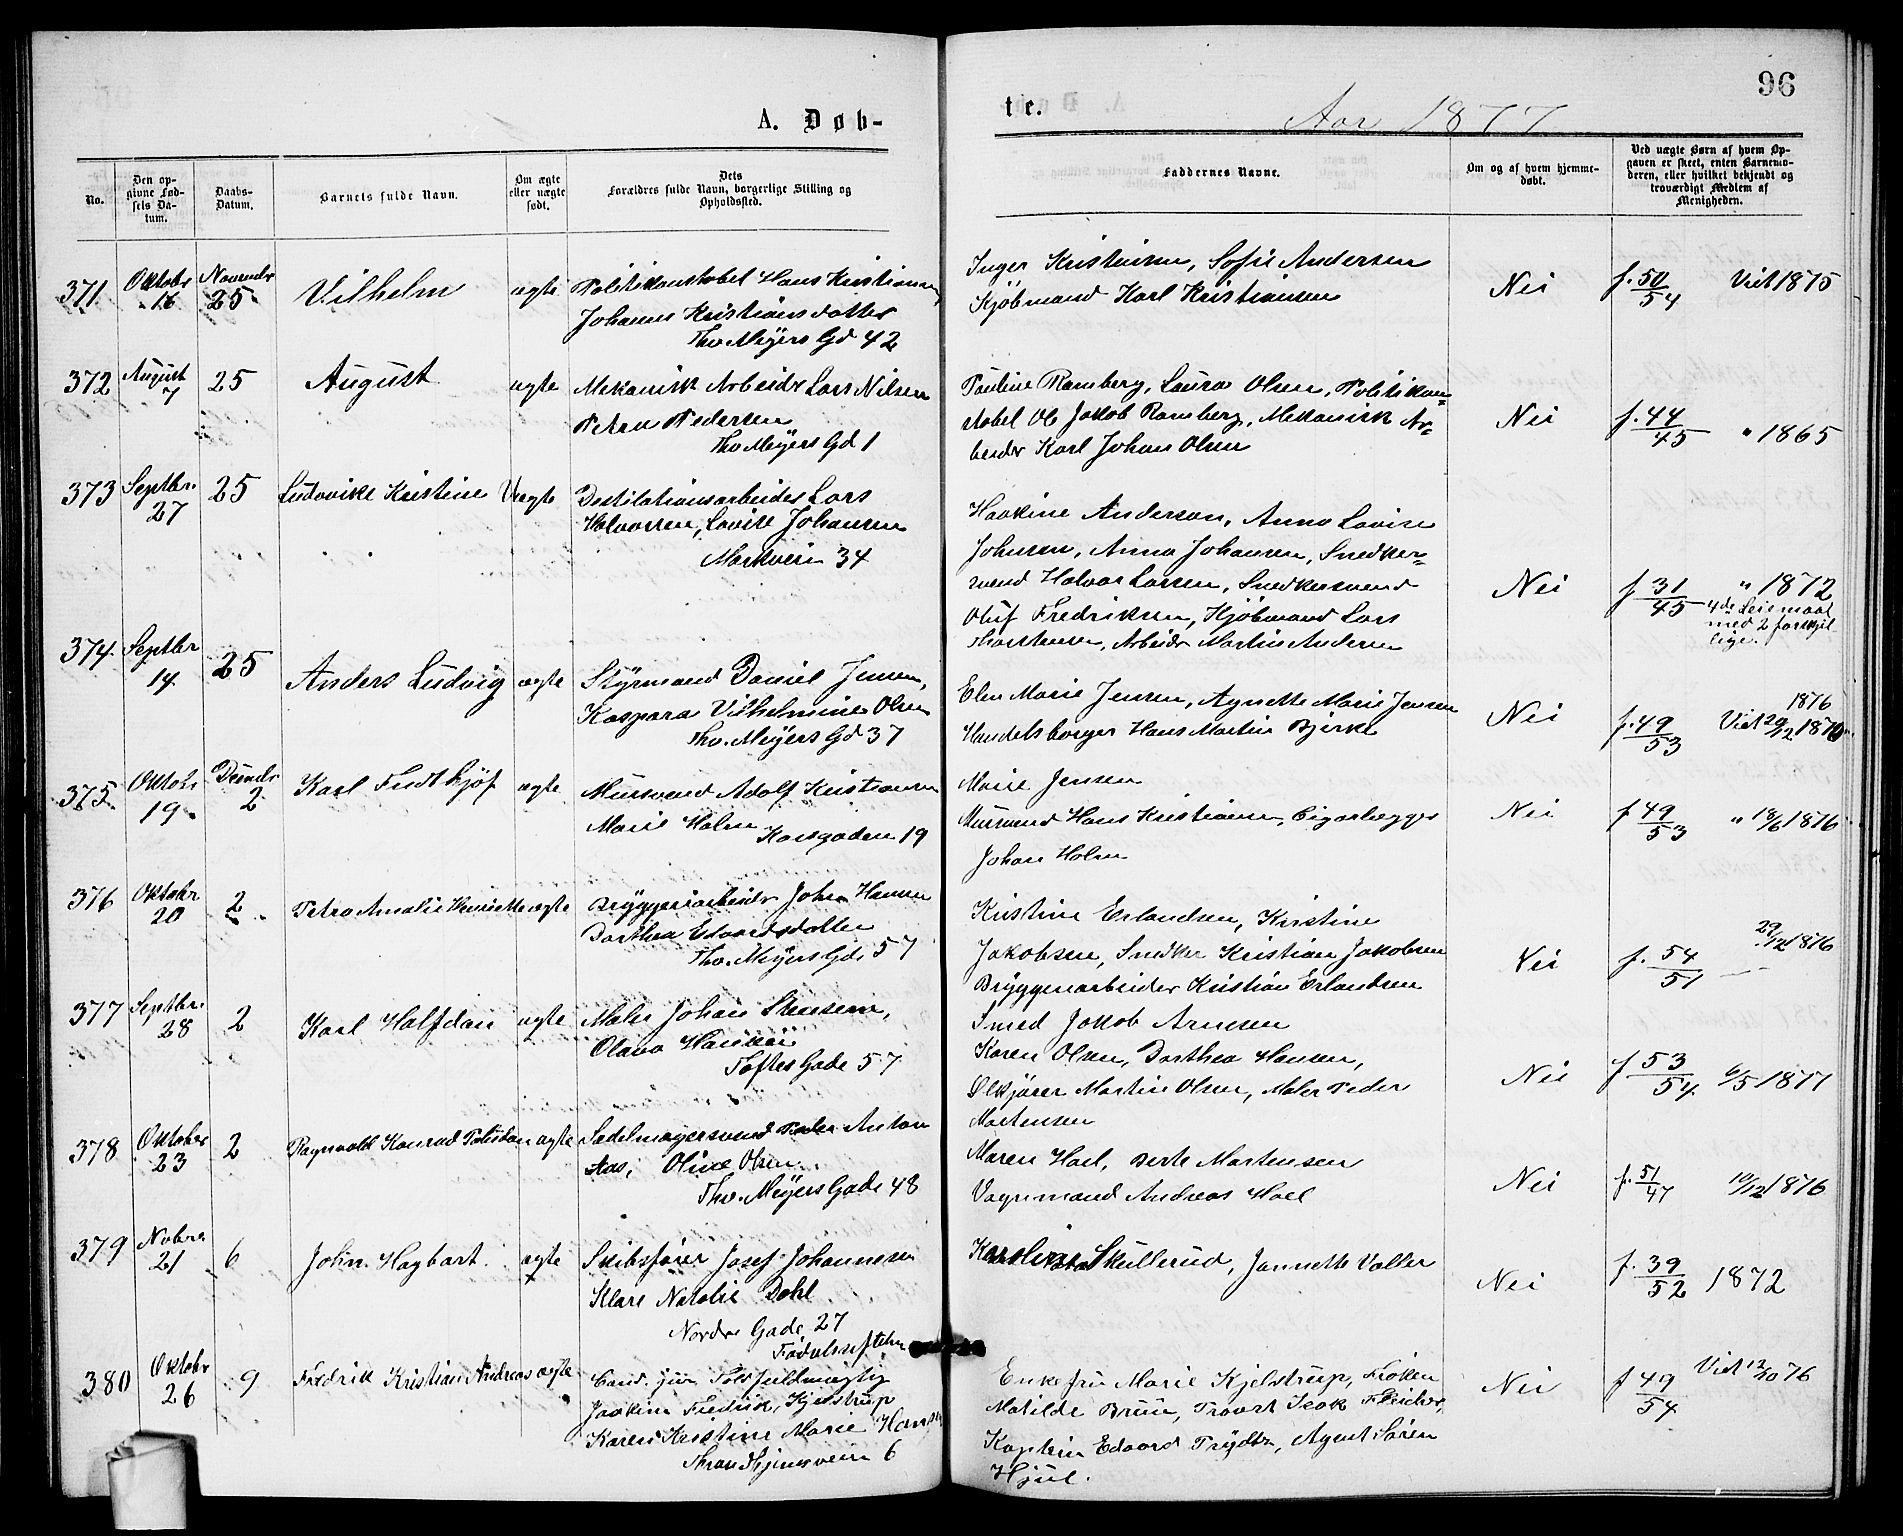 96
A. Døb-
te.
Aar 1877
No.
Den op-
givne Fød-
sels Da-
tum.
Daabs-
Datum.
Barnets fulde Navn.
Om ægte
eller uægte
født.
Dets
Forældres fulde Navn, borgerlige Stilling og
Opholdssted.
Faddernes Navne.
Om og af hvem hjemme-
døbt.
Ved uægte Børn af hvem Op-
gaven er skeet, enten Barnemo-
deren, eller hvilket bekjendt og
troværdigt Medlem af
Menigheden.
371
Oktobr
16
Novembr
25
Vilhelm
ægte
Politikonstabel Hans Kristiansen
Johanne Kristiansdatter
Thv. Meyers Gd 42
Inger Kristiansen, Sofie Andersen
Kjøbmand Karl Kristiansen
Nei
f. 50/54 Viet 1875
372
August
7
25
August
ægte
Mekanisk Arbeider Lars Nilsen
Petra Pedersen
Thv Meyers Gd 1
Pauline Ramberg, Laura Olsen, Politikon=
stabel Ole Jakob Ramberg, Mekanisk Ar=
beider Karl Johan Olsen
Nei
f. 44/45 " 1865
373
Septbr.
27
25
Ludovike Kristine
Uægte
Destilationsarbeider Lars
Halvorsen, Lovise Johansen
Markveien 34
Haakine Anderson, Anna Lovise
Johnsen, Anna Johansen, Snedker=
svend Halvor Larsen, Snedkersvend
Oluf Fredriksen, Kjøbmand Lars
Thorstensen, Arbeider Martin Andersen
Nei
f 31/45 " 1872
4de Leiemaal
med 2 forskjel
lige.
374
Septbr
14
25
Anders Ludvig
ægte
Styrmand Daniel Jensen,
Kaspara Vilhelmine Olsen
Thv. Meyers Gd 37
Elen Marie Jensen, Agnette Marie Jensen
Handelsborger Hans Martin Bjerke
Nei
1876
f. 49/53 Viet 29/12 1870
375
Oktobr
19
Decembr
2
Karl Fridtthjof
ægte
Mursvend Adolf Kristiansen
Marie Holm
Korsgaden 19
Marie Jensen
Mursvend Hans Kristiansen, Cigarlægger
Johan Holm
Nei
f 49/53 " 18/6 1876
376
Oktobr
20
2
Petra Amalie Henriette
ægte
Bryggeriarbeider Johan Hansen
Dorthea Edvardsdatter
Thv. Meyers Gd. 57
Kristine Erlandsen, Kristine
Jakobsen, Snedker Kristian Jakobsen
Bryggeriarbeider Kristian Erlandsen
Nei
f. 54/51 29/12 1876
377
Septbr.
28
2
Karl Halfdan
ægte
Maler Johan Stensen,
Olava Hansen
Toftes Gade 57
Smed Jakob Arnesen
Karen Olsen, Dorthea Hansen,
Ølkjører Martin Olsen, Maler Peder
Mortensen
Nei
f 53/54 6/5 1877
378
Oktober
23
2
Ragnvald Konrad
ægte
Sadelmagersvend Peder Anton
Aas, Oline Olsen
Thv. Meyers Gade 48
Maren Hoel, Berte Mortensen
Vognmand Andreas Hoel
Nei
f. 51/47 10/12 1876
379
Nobre
21
6
John Hagbart
ægte
Skibsfører Josef Johannesen
Klara Natalie Dahl
Nordre Gade 27
Fødselsstiftelsen
Skullerud, Jannette Valter
Nei
f. 39/52 1872
380
Oktobr
26
9
Fredrik Kristian Andreas
ægte
Cand. jur. Toldfuldmægtig
Joakim Fredrik Kjelstrup
Karen Kristine Marie Hansen
Throndhjemsveien 6
Enkefru Marie Kjelstrup, Frøken
Matilde Bruun, Isak Fleischer,
Kaptein Edvard, Agent Søren
Hjul.
Nei
f 49/54 Viet 12/10 76